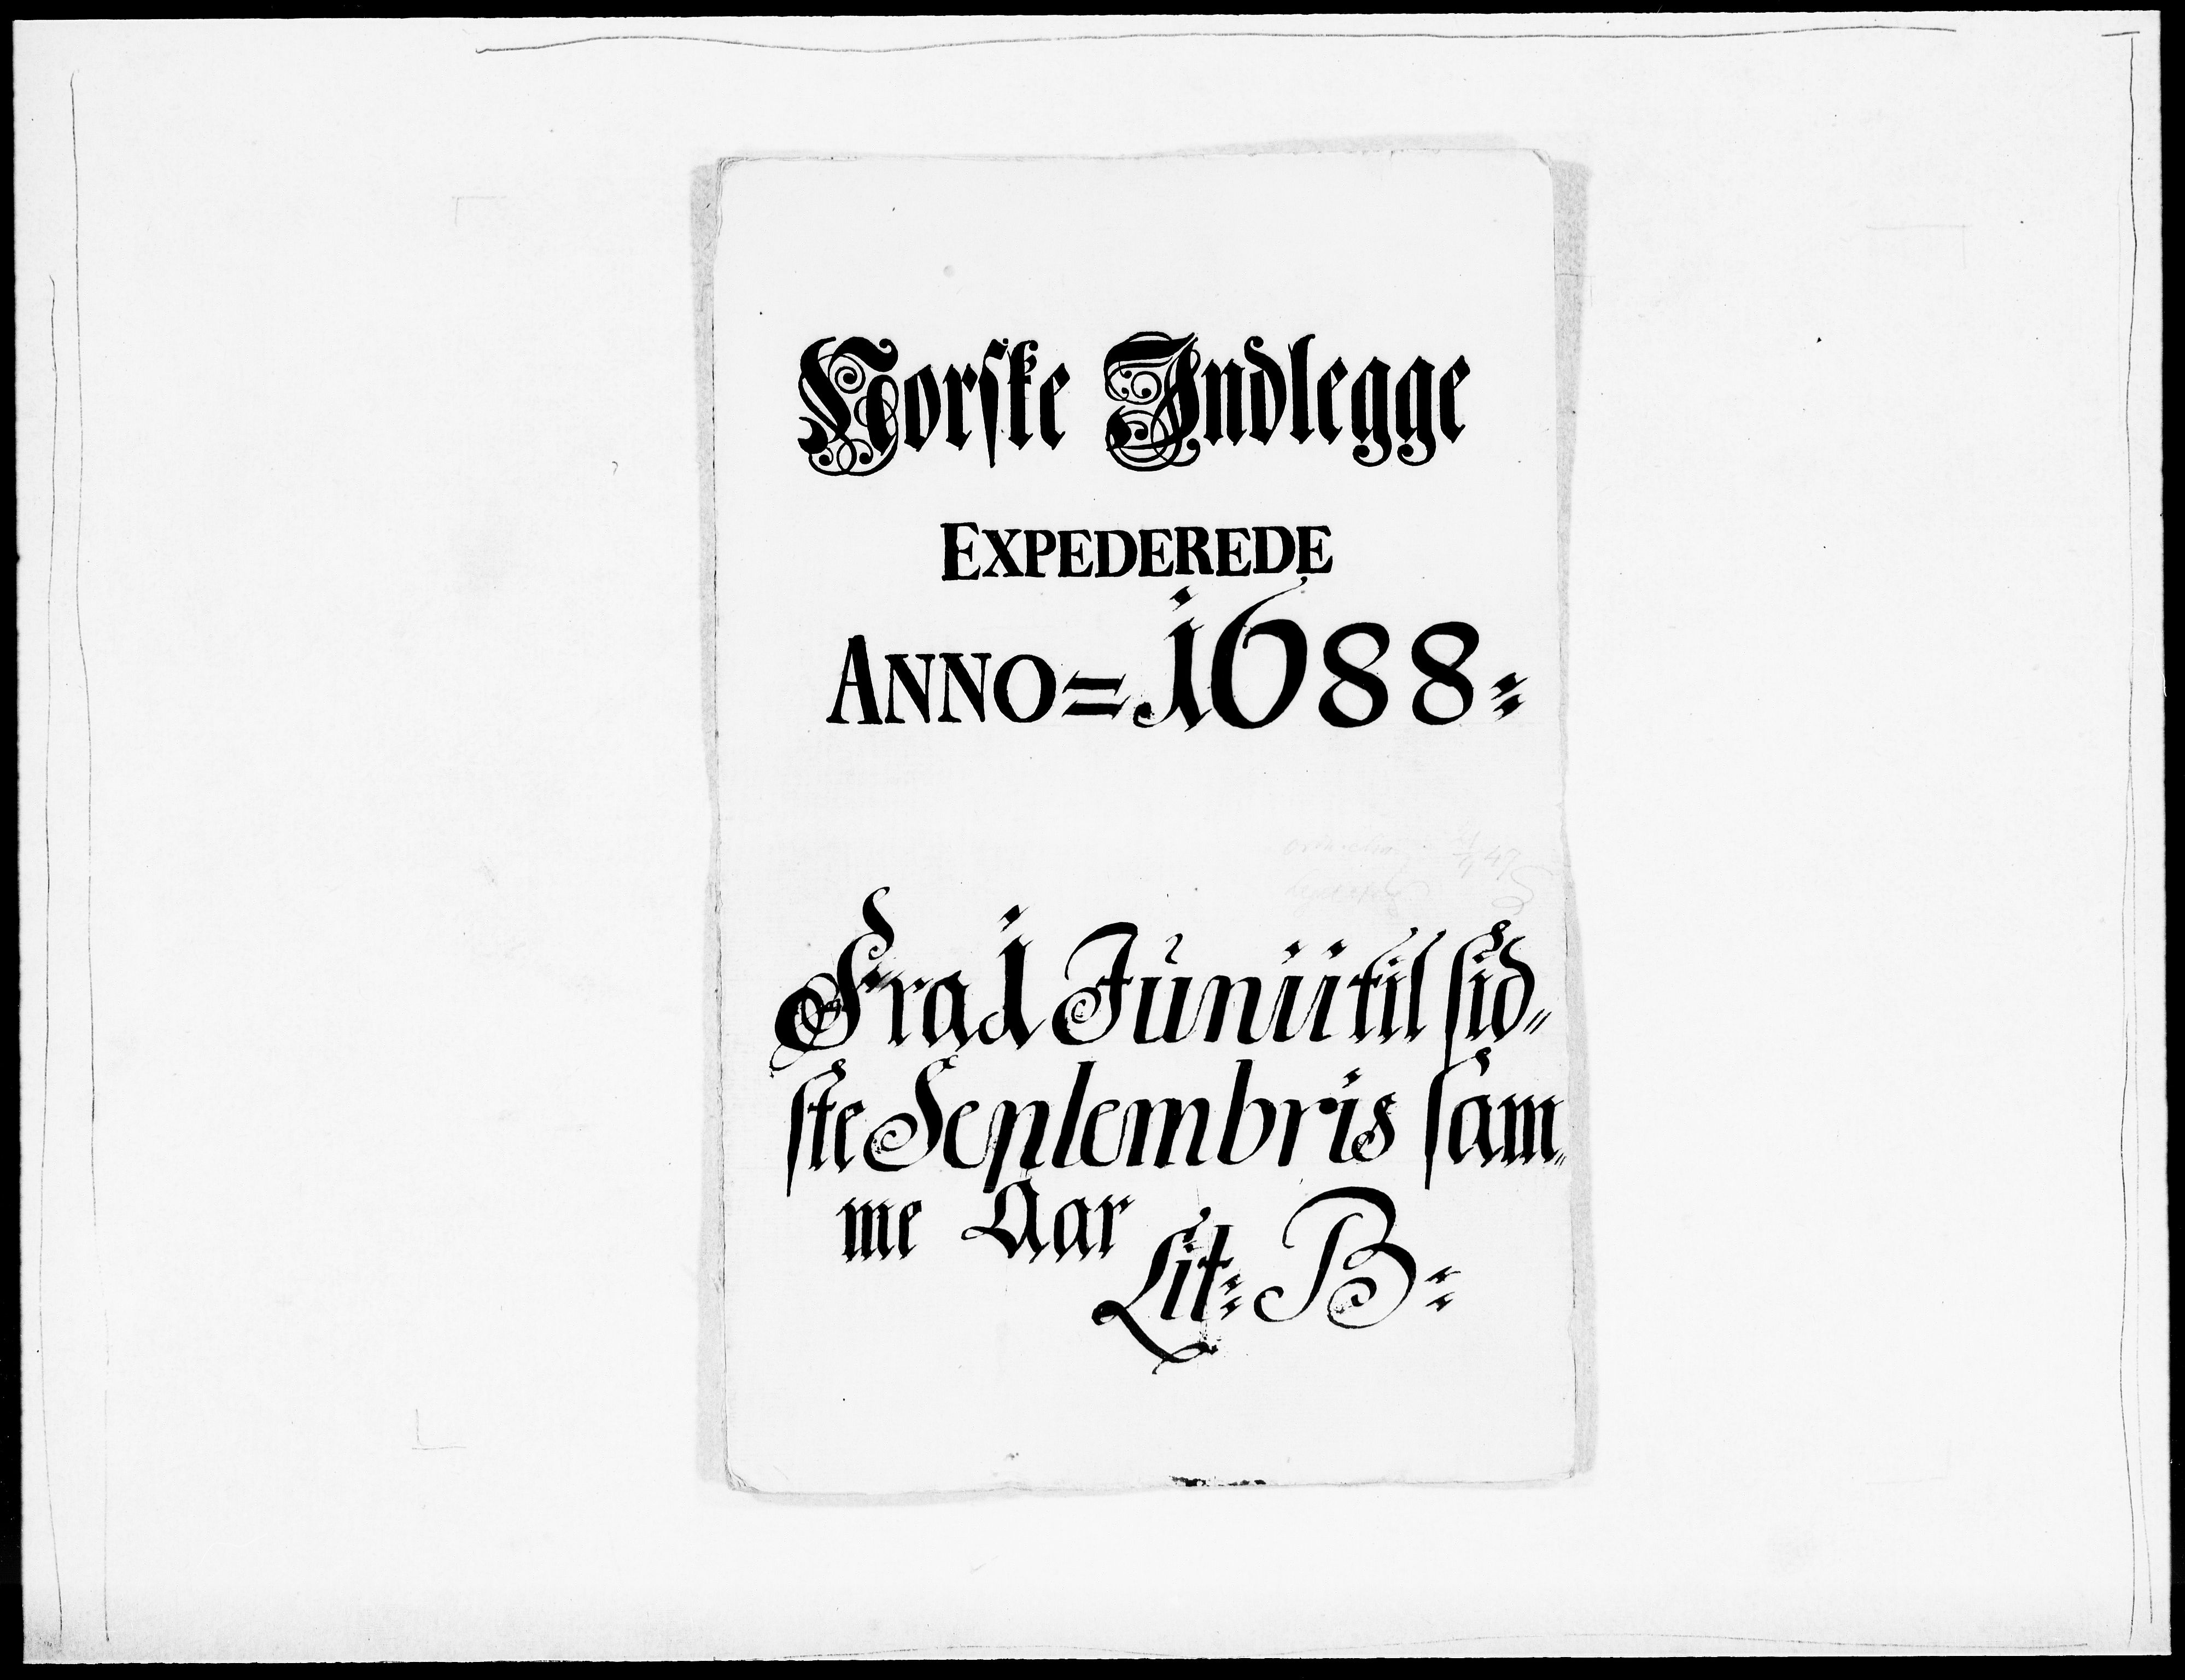 Norſke Indlegge
EXPEDEREDE
ANNO=1688=
Fra 1 Junii til ſid„
ſte Septembris ſam„
me Aar
Lit: B: